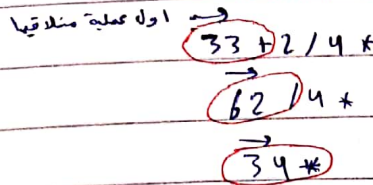 اول عملية منلاقيها 33+2/4*
62/4*
34*